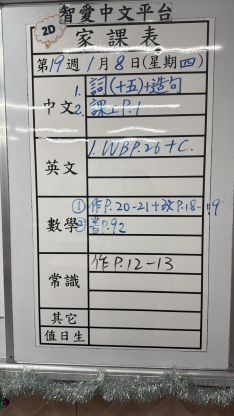 智愛中文平台
2D
家課表
第19週1月8日(星期四)
中文
1. 詞(十五)+造句
2. 課工P.1
英文
1. WBP.26+C.
數學
① 作P.20-21+改P.18-19
② 書P.92
常識
作P.12-13
其它
值日生